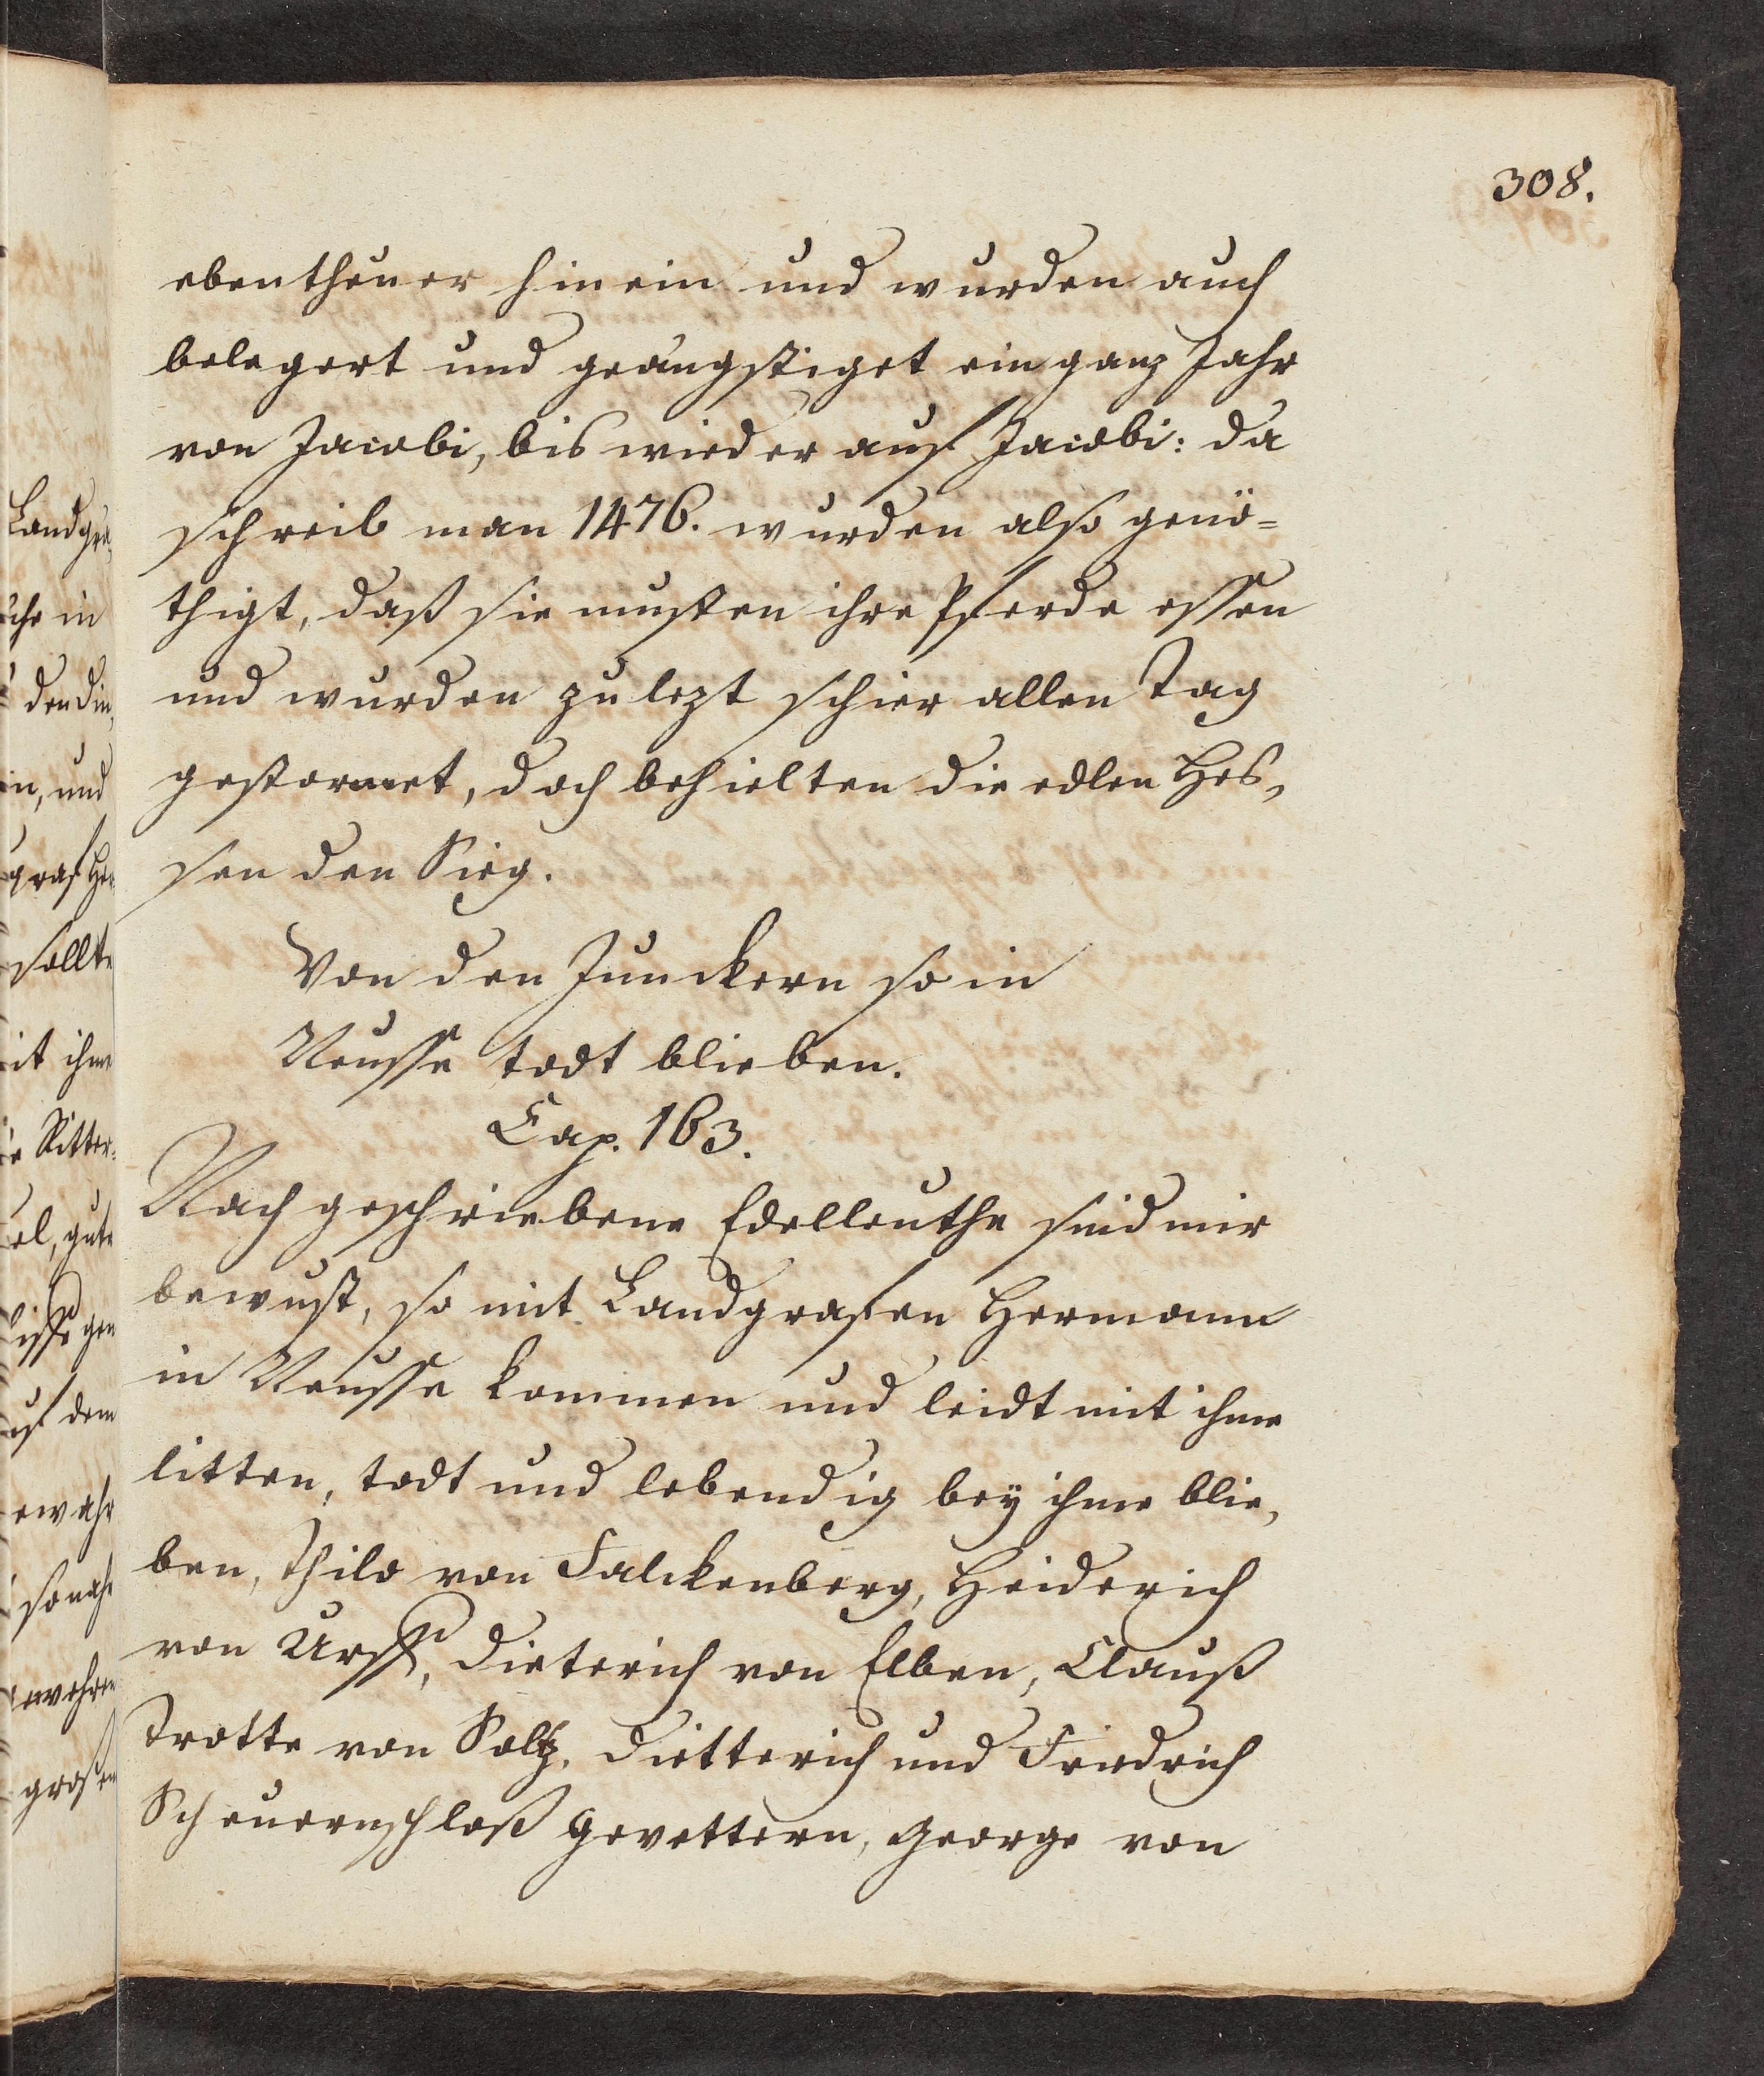 308.
ebentheuer hinein und wurden auch
belegert und geängstiget ein ganz Jahr
von Jacobi, bis wieder auf Jacobi: da
schreib man 1476. wurden also genö=
thigt, daß sie musten ihre Pferde essen
und wurden zu lezt schier allen Tag
gestormet, doch behielten die edlen Hes,
sen den Sieg.
Von den Junckern so in
Neusse todt blieben.
Cap. 163.
Nach geschriebene Edelleuthe sind mir
bewust, so mit Landgrafen Hermann
in Neusse kommen und leidt mit ihme
litten, todt und lebendig bey ihme blie,
ben, Thilo von Falckenberg, Heiderich
von Urff, Dieterich von Elben, Clauß
Trotte von Soltz, Dietterich und Friedrich
Scheuernschloß Gevettern, George von